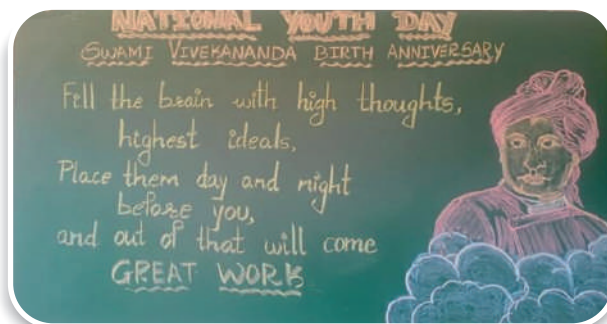 NATIONAL YOUTH DAY
SWAMI VIVEKANANDA BIRTH ANNIVERSARY
Fill the brain with high thoughts,
highest ideals,
Place them day and night
before you,
and out of that will come
GREAT WORK